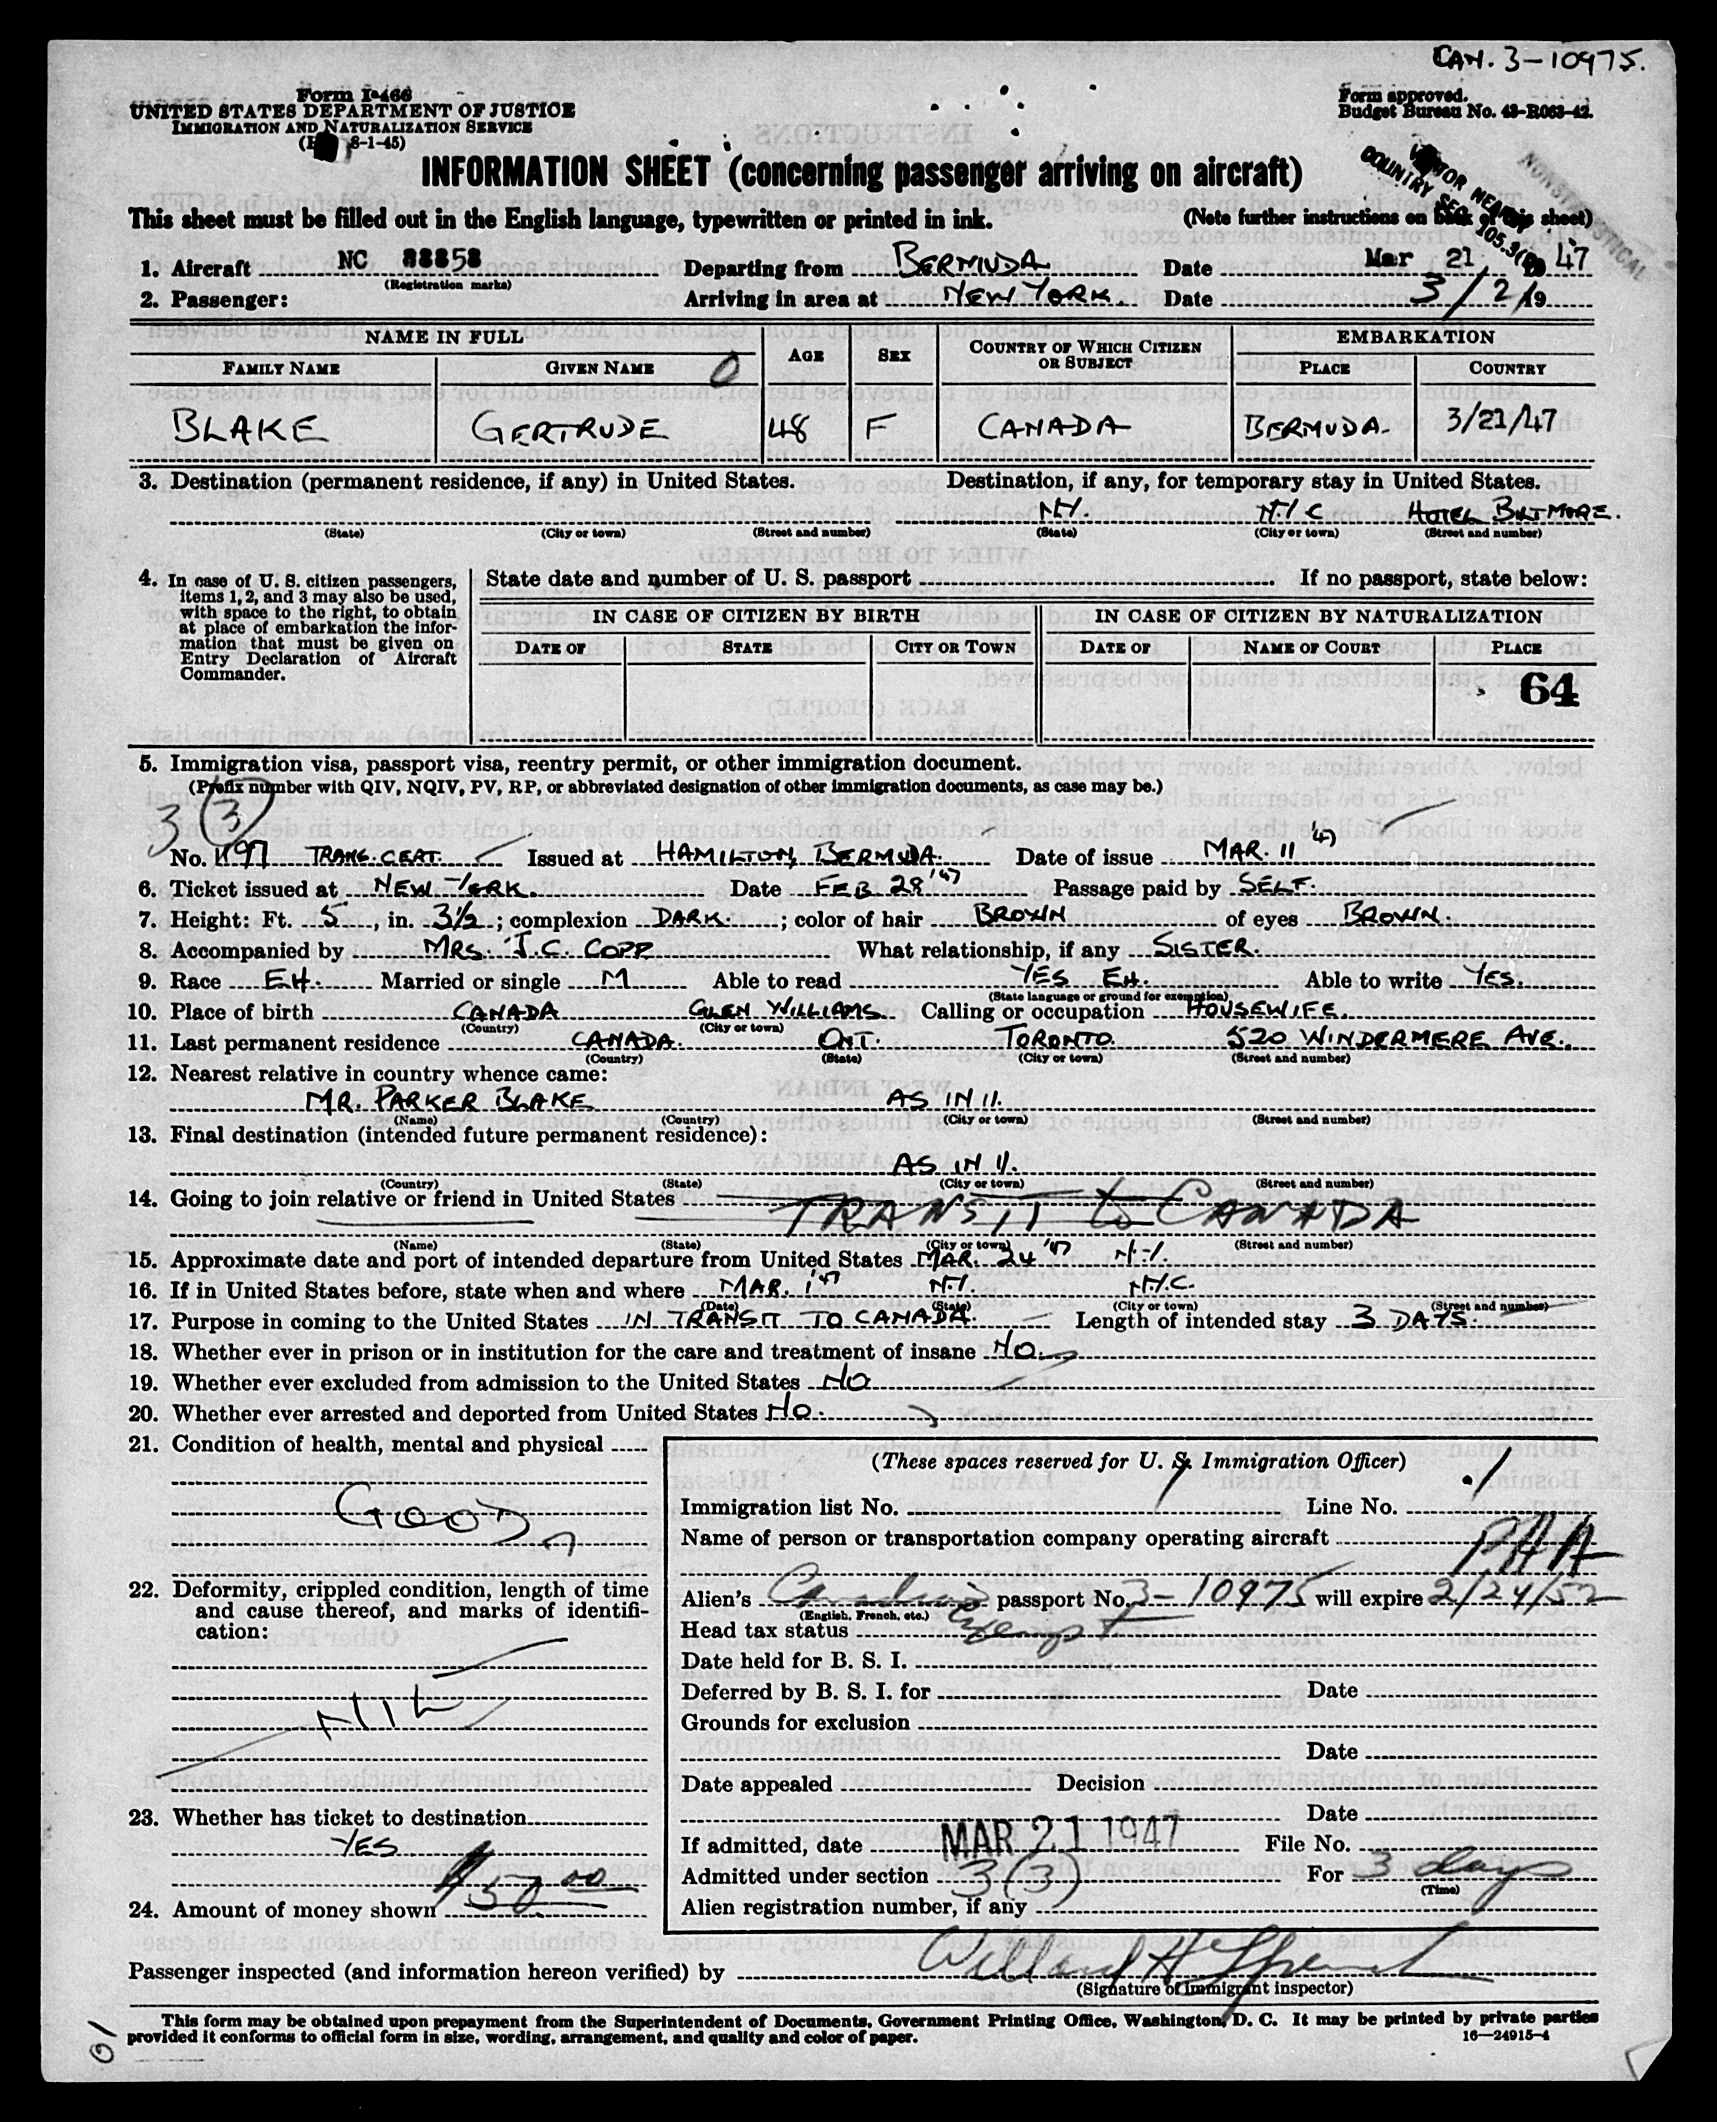 CAN. 3-10975.
Form I-466
UNITED STATES DEPARTMENT OF JUSTICE
IMMIGRATION AND NATURALIZATION SERVICE
8-1-45)
Form approved.
Budget Bureau No. 43-R063-42.
INFORMATION SHEET (concerning passenger arriving on aircraft)
COUNTRY SEC. 105.3
NONSTATISTICAL
This sheet must be filled out in the English language, typewritten or printed in ink. (Note further instructions on back of this sheet)
1. Aircraft NC 88858 Departing from BERMUDA Date Mar 21, 1947
(Registration marks)
2. Passenger: Arriving in area at NEW YORK. Date 3/21 19
NAME IN FULL AGE SEX COUNTRY OF WHICH CITIZEN OR SUBJECT EMBARKATION
FAMILY NAME GIVEN NAME PLACE COUNTRY
BLAKE GERTRUDE 48 F CANADA BERMUDA. 3/21/47
3. Destination (permanent residence, if any) in United States. Destination, if any, for temporary stay in United States.
N.Y. N.Y.C HOTEL BILTMORE.
(State) (City or town) (Street and number) (State) (City or town) (Street and number)
4. In case of U. S. citizen passengers, items 1, 2, and 3 may also be used, with space to the right, to obtain at place of embarkation the information that must be given on Entry Declaration of Aircraft Commander.
State date and number of U. S. passport If no passport, state below:
IN CASE OF CITIZEN BY BIRTH IN CASE OF CITIZEN BY NATURALIZATION
DATE OF STATE CITY OR TOWN DATE OF NAME OF COURT PLACE
64
5. Immigration visa, passport visa, reentry permit, or other immigration document.
(Prefix number with QIV, NQIV, PV, RP, or abbreviated designation of other immigration documents, as case may be.)
3 (3)
No. 1197 TRANS. CERT. Issued at HAMILTON, BERMUDA. Date of issue MAR. 11 '47
6. Ticket issued at NEW YORK. Date FEB 28 '47 Passage paid by SELF.
7. Height: Ft. 5, in. 3½; complexion DARK.; color of hair BROWN of eyes BROWN.
8. Accompanied by MRS. J.C. COPP What relationship, if any SISTER.
9. Race EH. Married or single M Able to read YES EH. Able to write YES.
(State language or ground for exemption)
10. Place of birth CANADA GLEN WILLIAMS. Calling or occupation HOUSEWIFE.
(Country) (City or town)
11. Last permanent residence CANADA. ONT. TORONTO. 520 WINDERMERE AVE.
(Country) (State) (City or town) (Street and number)
12. Nearest relative in country whence came:
MR. PARKER BLAKE AS IN 11.
(Name) (Country) (City or town) (Street and number)
13. Final destination (intended future permanent residence):
AS IN 11.
(Country) (State) (City or town) (Street and number)
14. Going to join relative or friend in United States TRANSIT to CANADA
(Name) (State) (City or town) (Street and number)
15. Approximate date and port of intended departure from United States MAR. 24 '47 N.Y.
16. If in United States before, state when and where MAR. 1 '47 N.Y. N.Y.C.
(Date) (State) (City or town) (Street and number)
17. Purpose in coming to the United States IN TRANSIT TO CANADA. Length of intended stay 3 DAYS.
18. Whether ever in prison or in institution for the care and treatment of insane NO.
19. Whether ever excluded from admission to the United States NO
20. Whether ever arrested and deported from United States NO.
21. Condition of health, mental and physical
GOOD
22. Deformity, crippled condition, length of time and cause thereof, and marks of identification:
NIL
23. Whether has ticket to destination
YES
24. Amount of money shown $50.00
(These spaces reserved for U. S. Immigration Officer)
Immigration list No. 1 Line No. 1
Name of person or transportation company operating aircraft
PAA
Alien's Canadian passport No. 3-10975 will expire 2/24/52
(English, French, etc.)
Head tax status Exempt
Date held for B. S. I.
Deferred by B. S. I. for Date
Grounds for exclusion
Date
Date appealed Decision
Date
If admitted, date MAR 21 1947 File No.
Admitted under section 3(3) For 3 days
(Time)
Alien registration number, if any
Passenger inspected (and information hereon verified) by Willard H
(Signature of immigrant inspector)
This form may be obtained upon prepayment from the Superintendent of Documents, Government Printing Office, Washington, D. C. It may be printed by private parties
provided it conforms to official form in size, wording, arrangement, and quality and color of paper. 16—24915-4
10